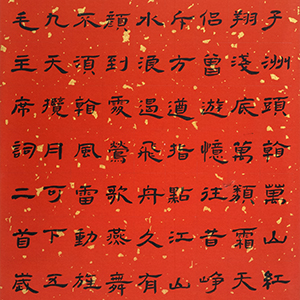 子洲頭看萬山紅
翔淺底萬類霜天
侶曾遊憶往昔崢
斥方遒指點江山
水浪遏飛舟久有
顏到處鶯歌燕舞
不須看風雷動旌
九天攬月可下五
毛主席詞二首歲